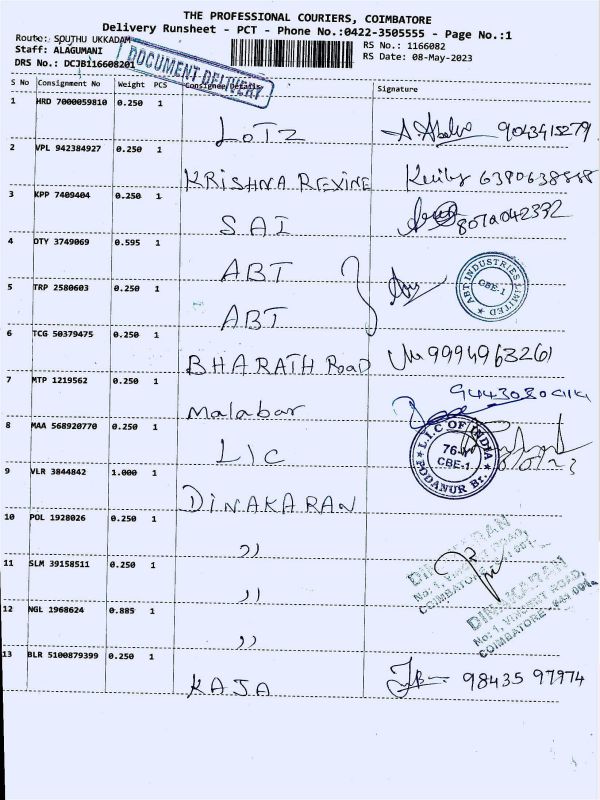 THE PROFESSIONAL COURIERS, COIMBATORE
Delivery Runsheet - PCT - Phone No.:0422-3505555 - Page No.:1
Route: SOUTHU UKKADAM
RS No.: 1166082
Staff: ALAGUMANI
RS Date: 08-May-2023
DRS No.: DCJB116608201
DOCUMENT DELIVERY
S No Consignment No Weight PCS Consignee/Details Signature
1 HRD 7000059810 0.250 1
LOTZ 9043415279
2 VPL 942384927 0.250 1
KRISHNA REXINE 6380638888
3 KPP 7409404 0.250 1
SAI 807a042332
4 DTY 3749069 0.595 1
ABT
ABT INDUSTRIES LIMITED CBE-1
5 TRP 2580603 0.250 1
ABT
6 TCG 50379475 0.250 1
BHARATH Road 9994963261
7 MTP 1219562 0.250 1
Malabar
8 MAA 568920770 0.250 1
LIC
L.I.C OF INDIA 76 CBE-1 PODANUR Br.
9 VLR 3844842 1.000 1
DINAKARAN
10 POL 1928026 0.250 1
,,
11 SLM 39158511 0.250 1
,,
DINAKARAN
No: 1, VINCENT ROAD,
COIMBATORE
12 NGL 1968624 0.885 1
,,
DINAKARAN
No: 1, VINCENT ROAD,
COIMBATORE - 641 001.
13 BLR 5100879399 0.250 1
KAJA 98435 97974